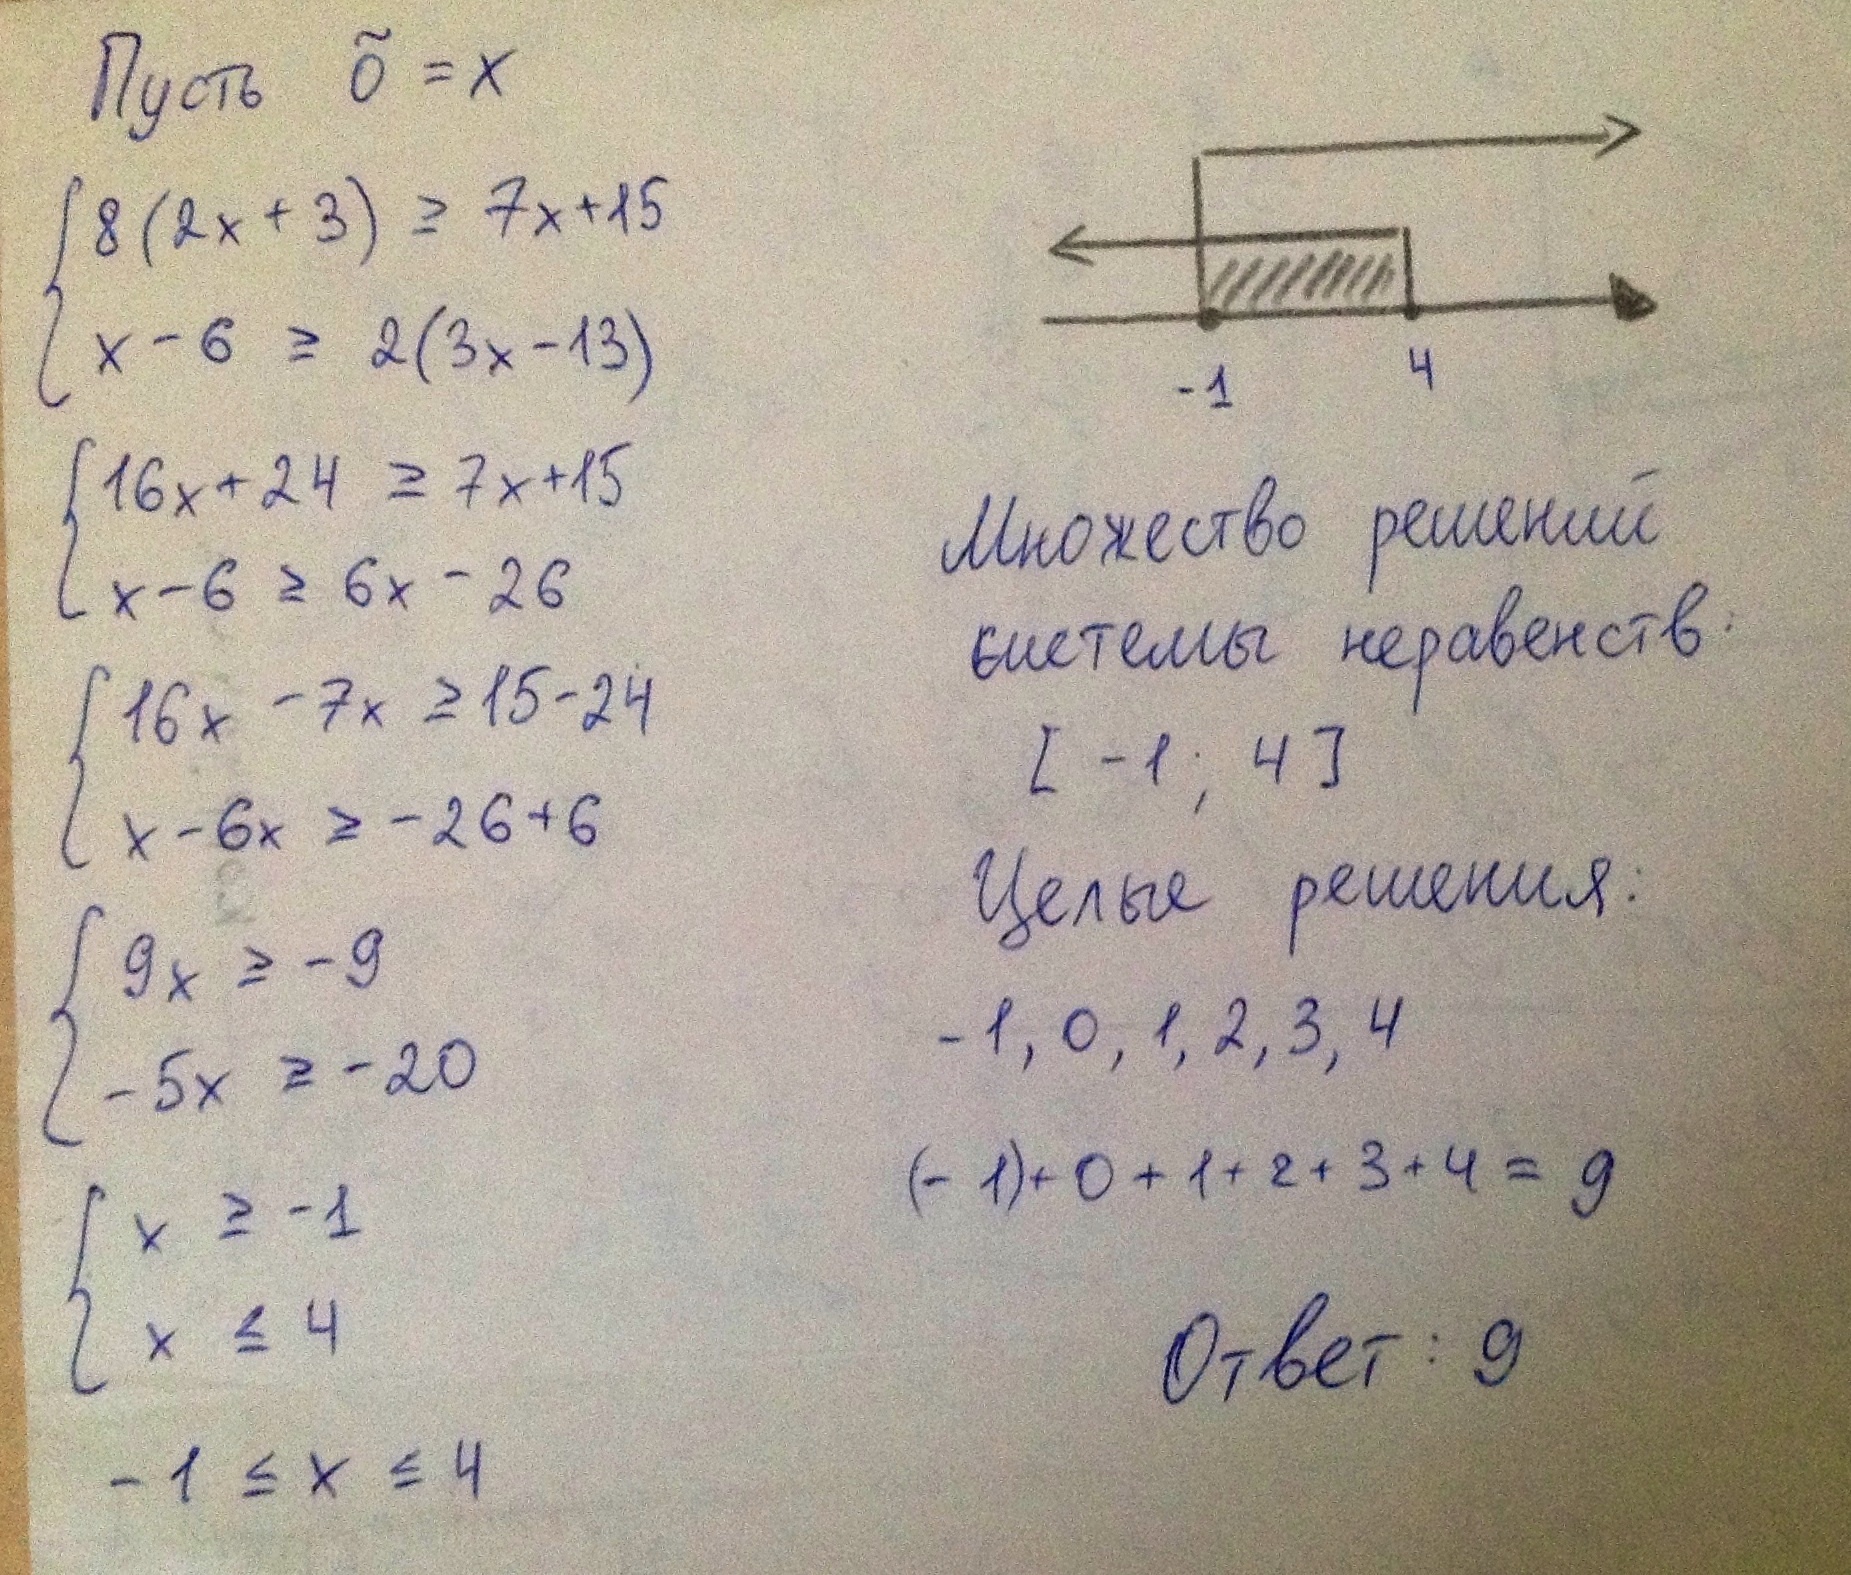 Пусть õ = x
8(2x + 3) ≥ 7x+15
x - 6 ≥ 2(3x - 13)
16x + 24 ≥ 7x+15
x - 6 ≥ 6x - 26
16x - 7x ≥ 15 - 24
x - 6x ≥ -26 + 6
9x ≥ -9
-5x ≥ -20
x ≥ -1
x ≤ 4
-1 ≤ x ≤ 4
-1 4
Множество решений
системы неравенств:
[ -1; 4 ]
Целые решения:
-1, 0, 1, 2, 3, 4
(-1)+0+1+2+3+4 = 9
Ответ: 9